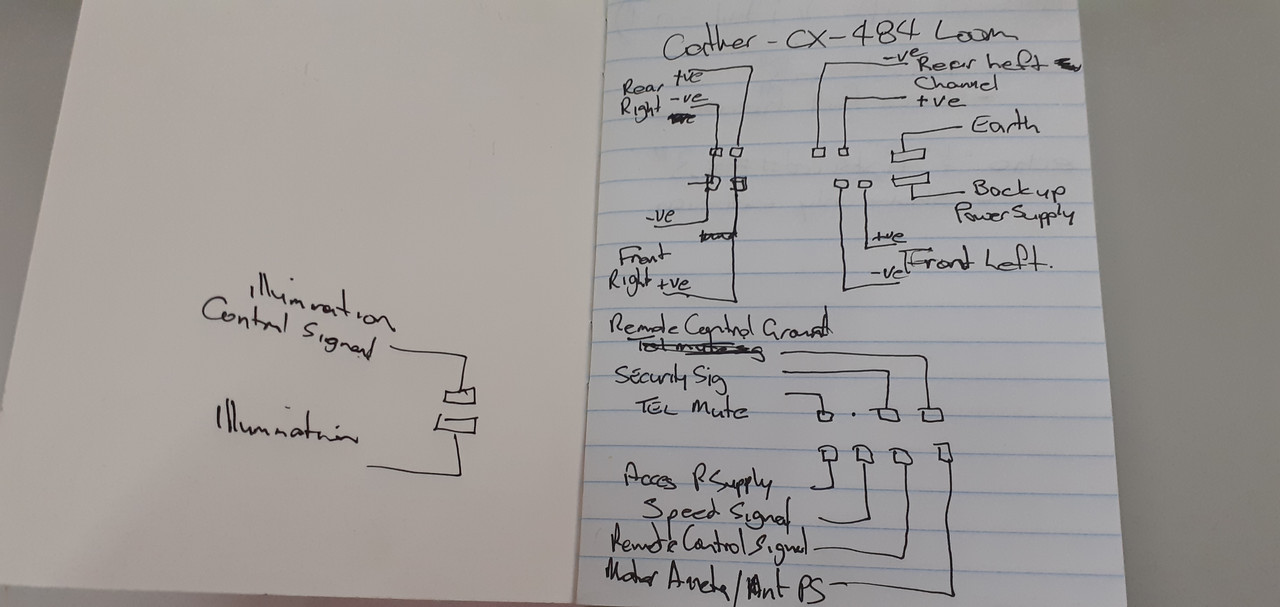 Illumination
Control Signal
Illumination
Cother - CX-484 Loom
Rear +ve
Right -ve
-ve Rear Left
Channel
+ve
Earth
Backup
Power Supply
-ve
Front
Right +ve
+ve
-ve Front Left.
Remote Control Ground
Security Sig
TEL Mute
Acces P Supply
Speed Signal
Remote Control Signal
Motor / Ant PS